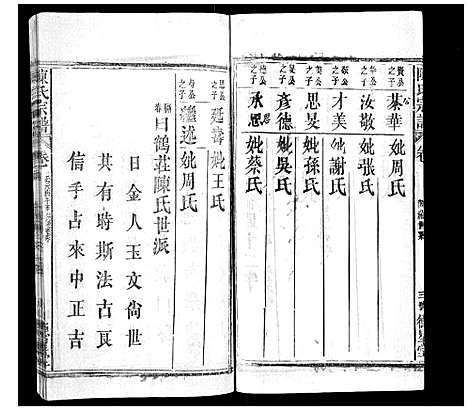 陳氏宗譜
卷
賢公之子 蓁華 妣周氏
之子 汝敬 妣張氏
公之子 才美 妣謝氏
公之子 思旻 妣孫氏
公之子 彥德 妣吳氏
公之子 承恩 妣蔡氏
思公之子 延壽 妣王氏
公之子 繼述 妣周氏
白鶴莊陳氏世派
日金人玉文尙世
其有時斯法古良
信手占來中正吉
陳氏宗譜
卷